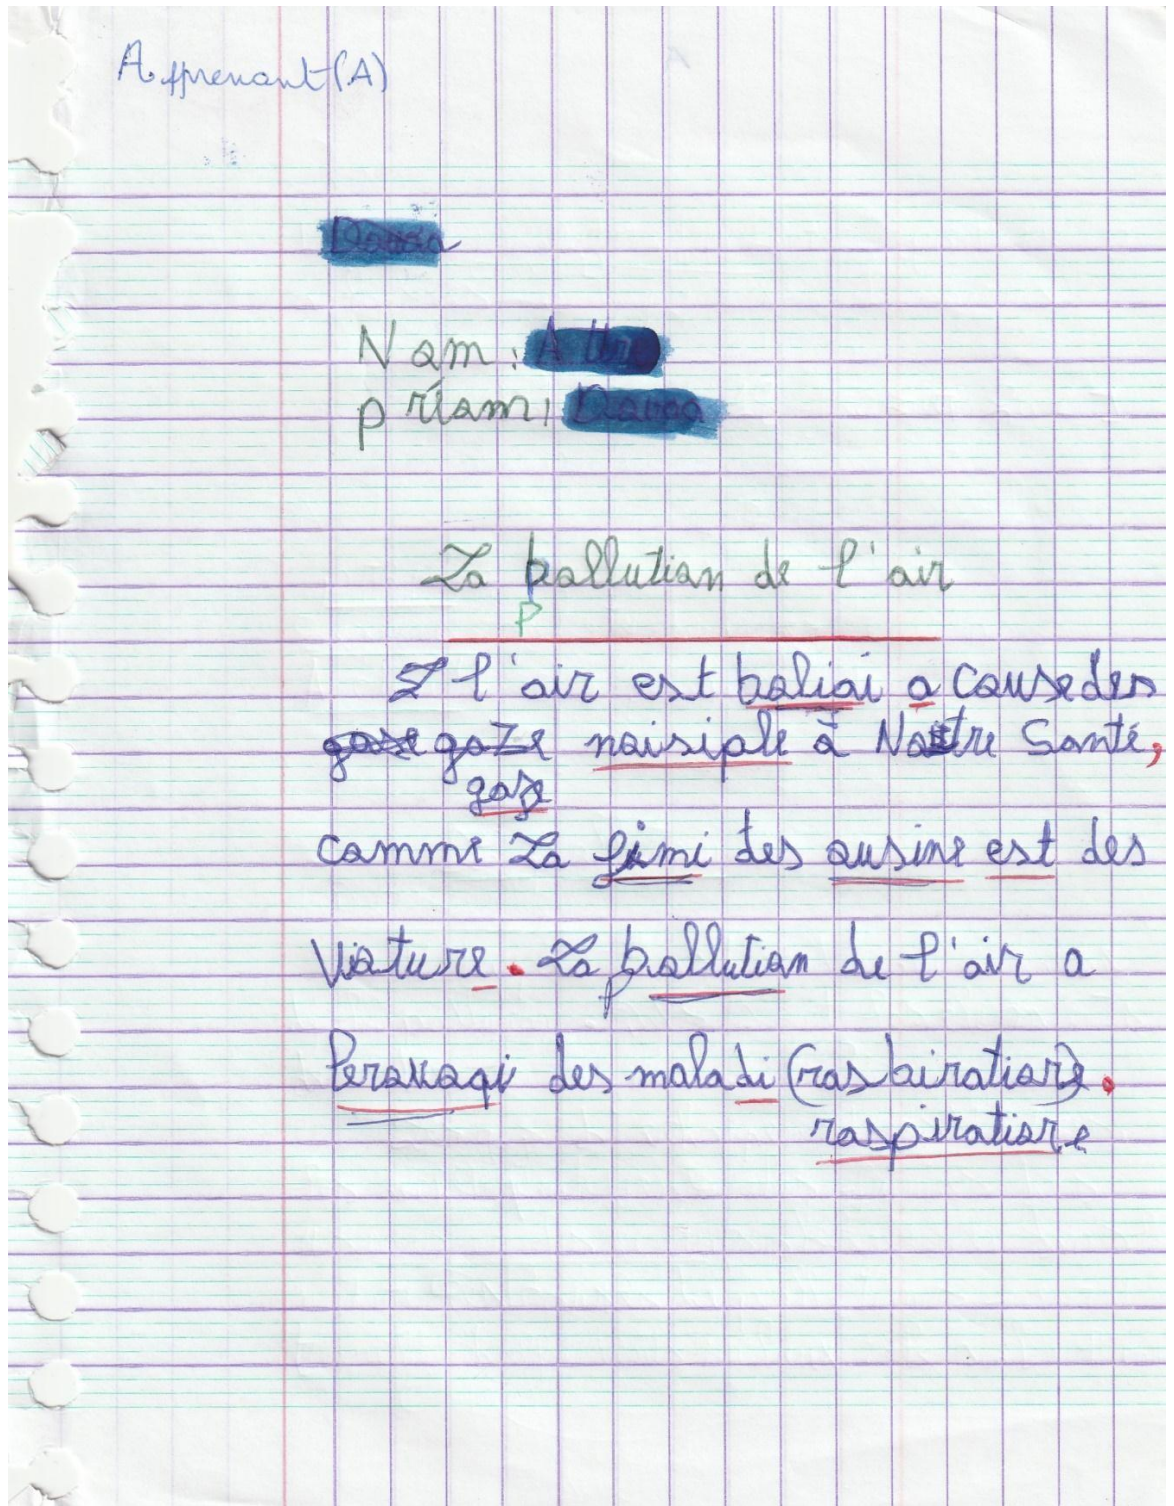 Apprenant (A)
Nom :
prénom :
La bollution de l'air
P
l'air est boliai a cause des
gaze noisiple à Nostre Santé,
gaze
comme La fimi des ousine est des
Voiture. La pollution de l'air a
des maladi (rasbiratiore).
raspiratiore